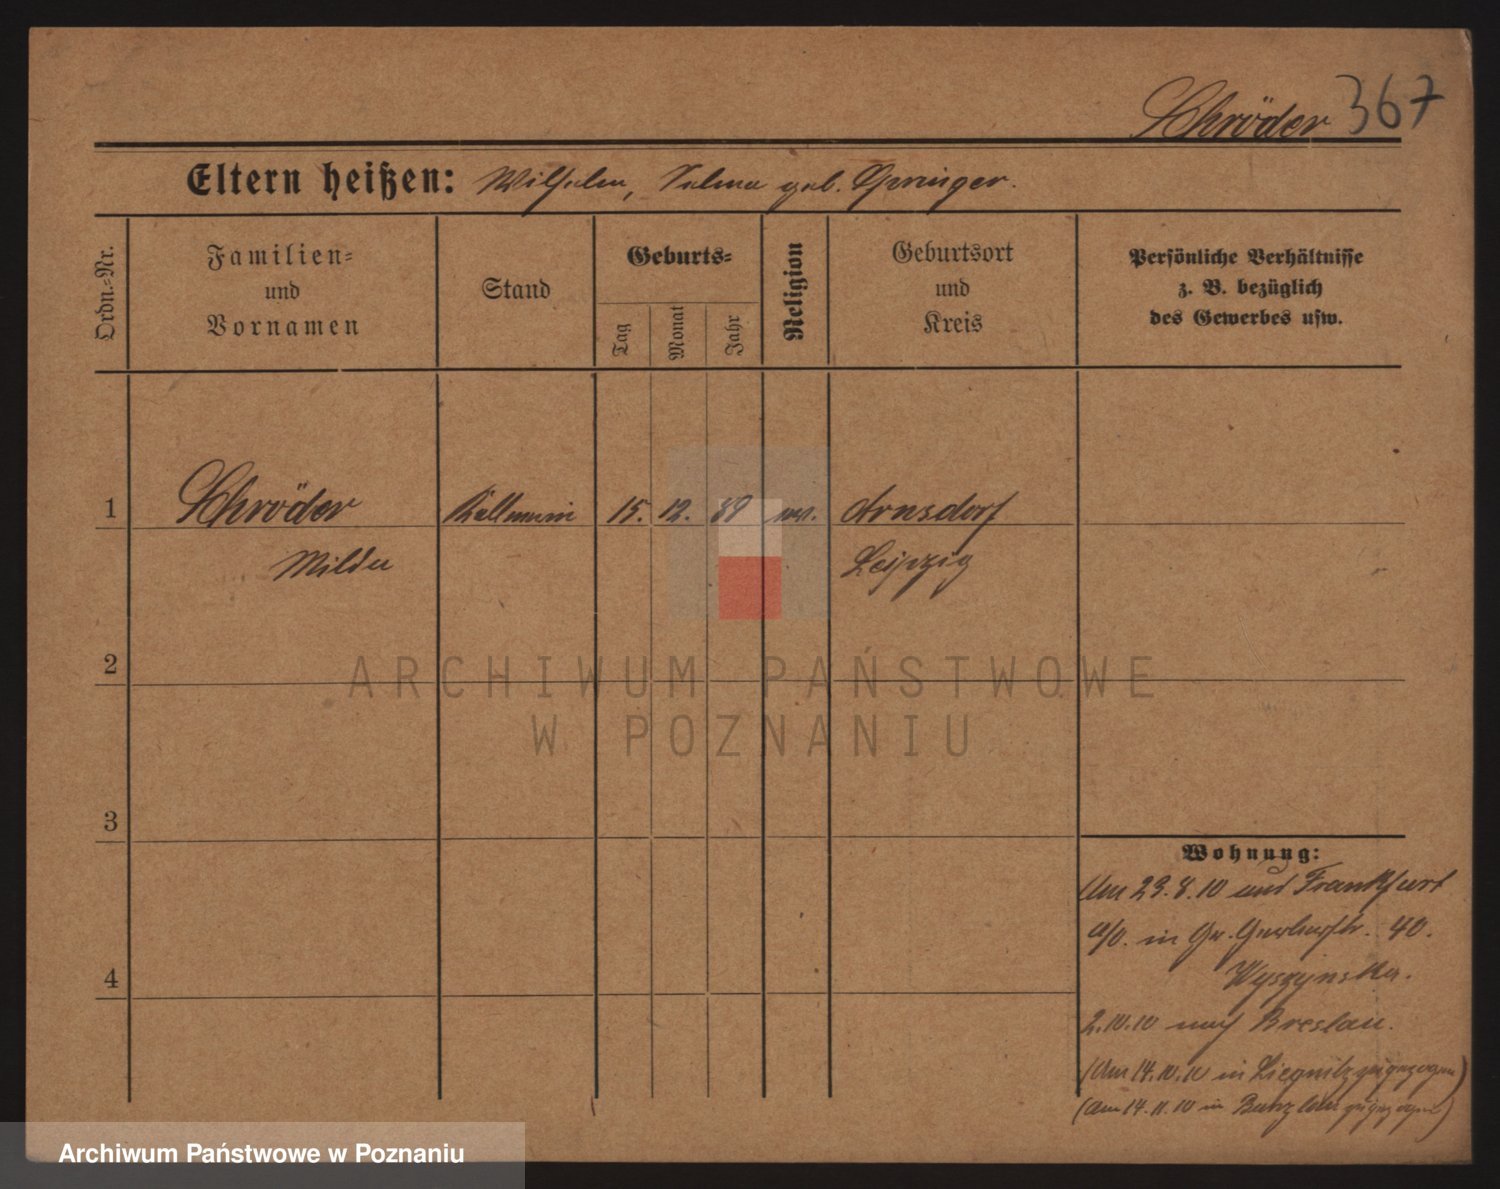 Schröder 367
Eltern heißen: Wilhelm, Selma geb. Spreniger.
Ordn.-Nr.
Familien-
und
Vornamen
Stand
Geburts-
Tag
Monat
Jahr
Religion
Geburtsort
und
Kreis
Persönliche Verhältnisse
z. B. bezüglich
des Gewerbes usw.
1 Schröder Kellnerin 15. 12. 89 ev. Arnsdorf
Milda Leipzig
2
3
4
Wohnung:
Am 29.8.10 aus Frankfurt
a/O. in Gr. Gerberstr. 40.
Wyszynska.
2.10.10 nach Breslau.
(Am 14.10.10 in Liegnitz zugezogen)
(Am 14.11.10 in Bunzlau zugezogen)
ARCHIWUM PAŃSTWOWE
W POZNANIU
Archiwum Państwowe w Poznaniu